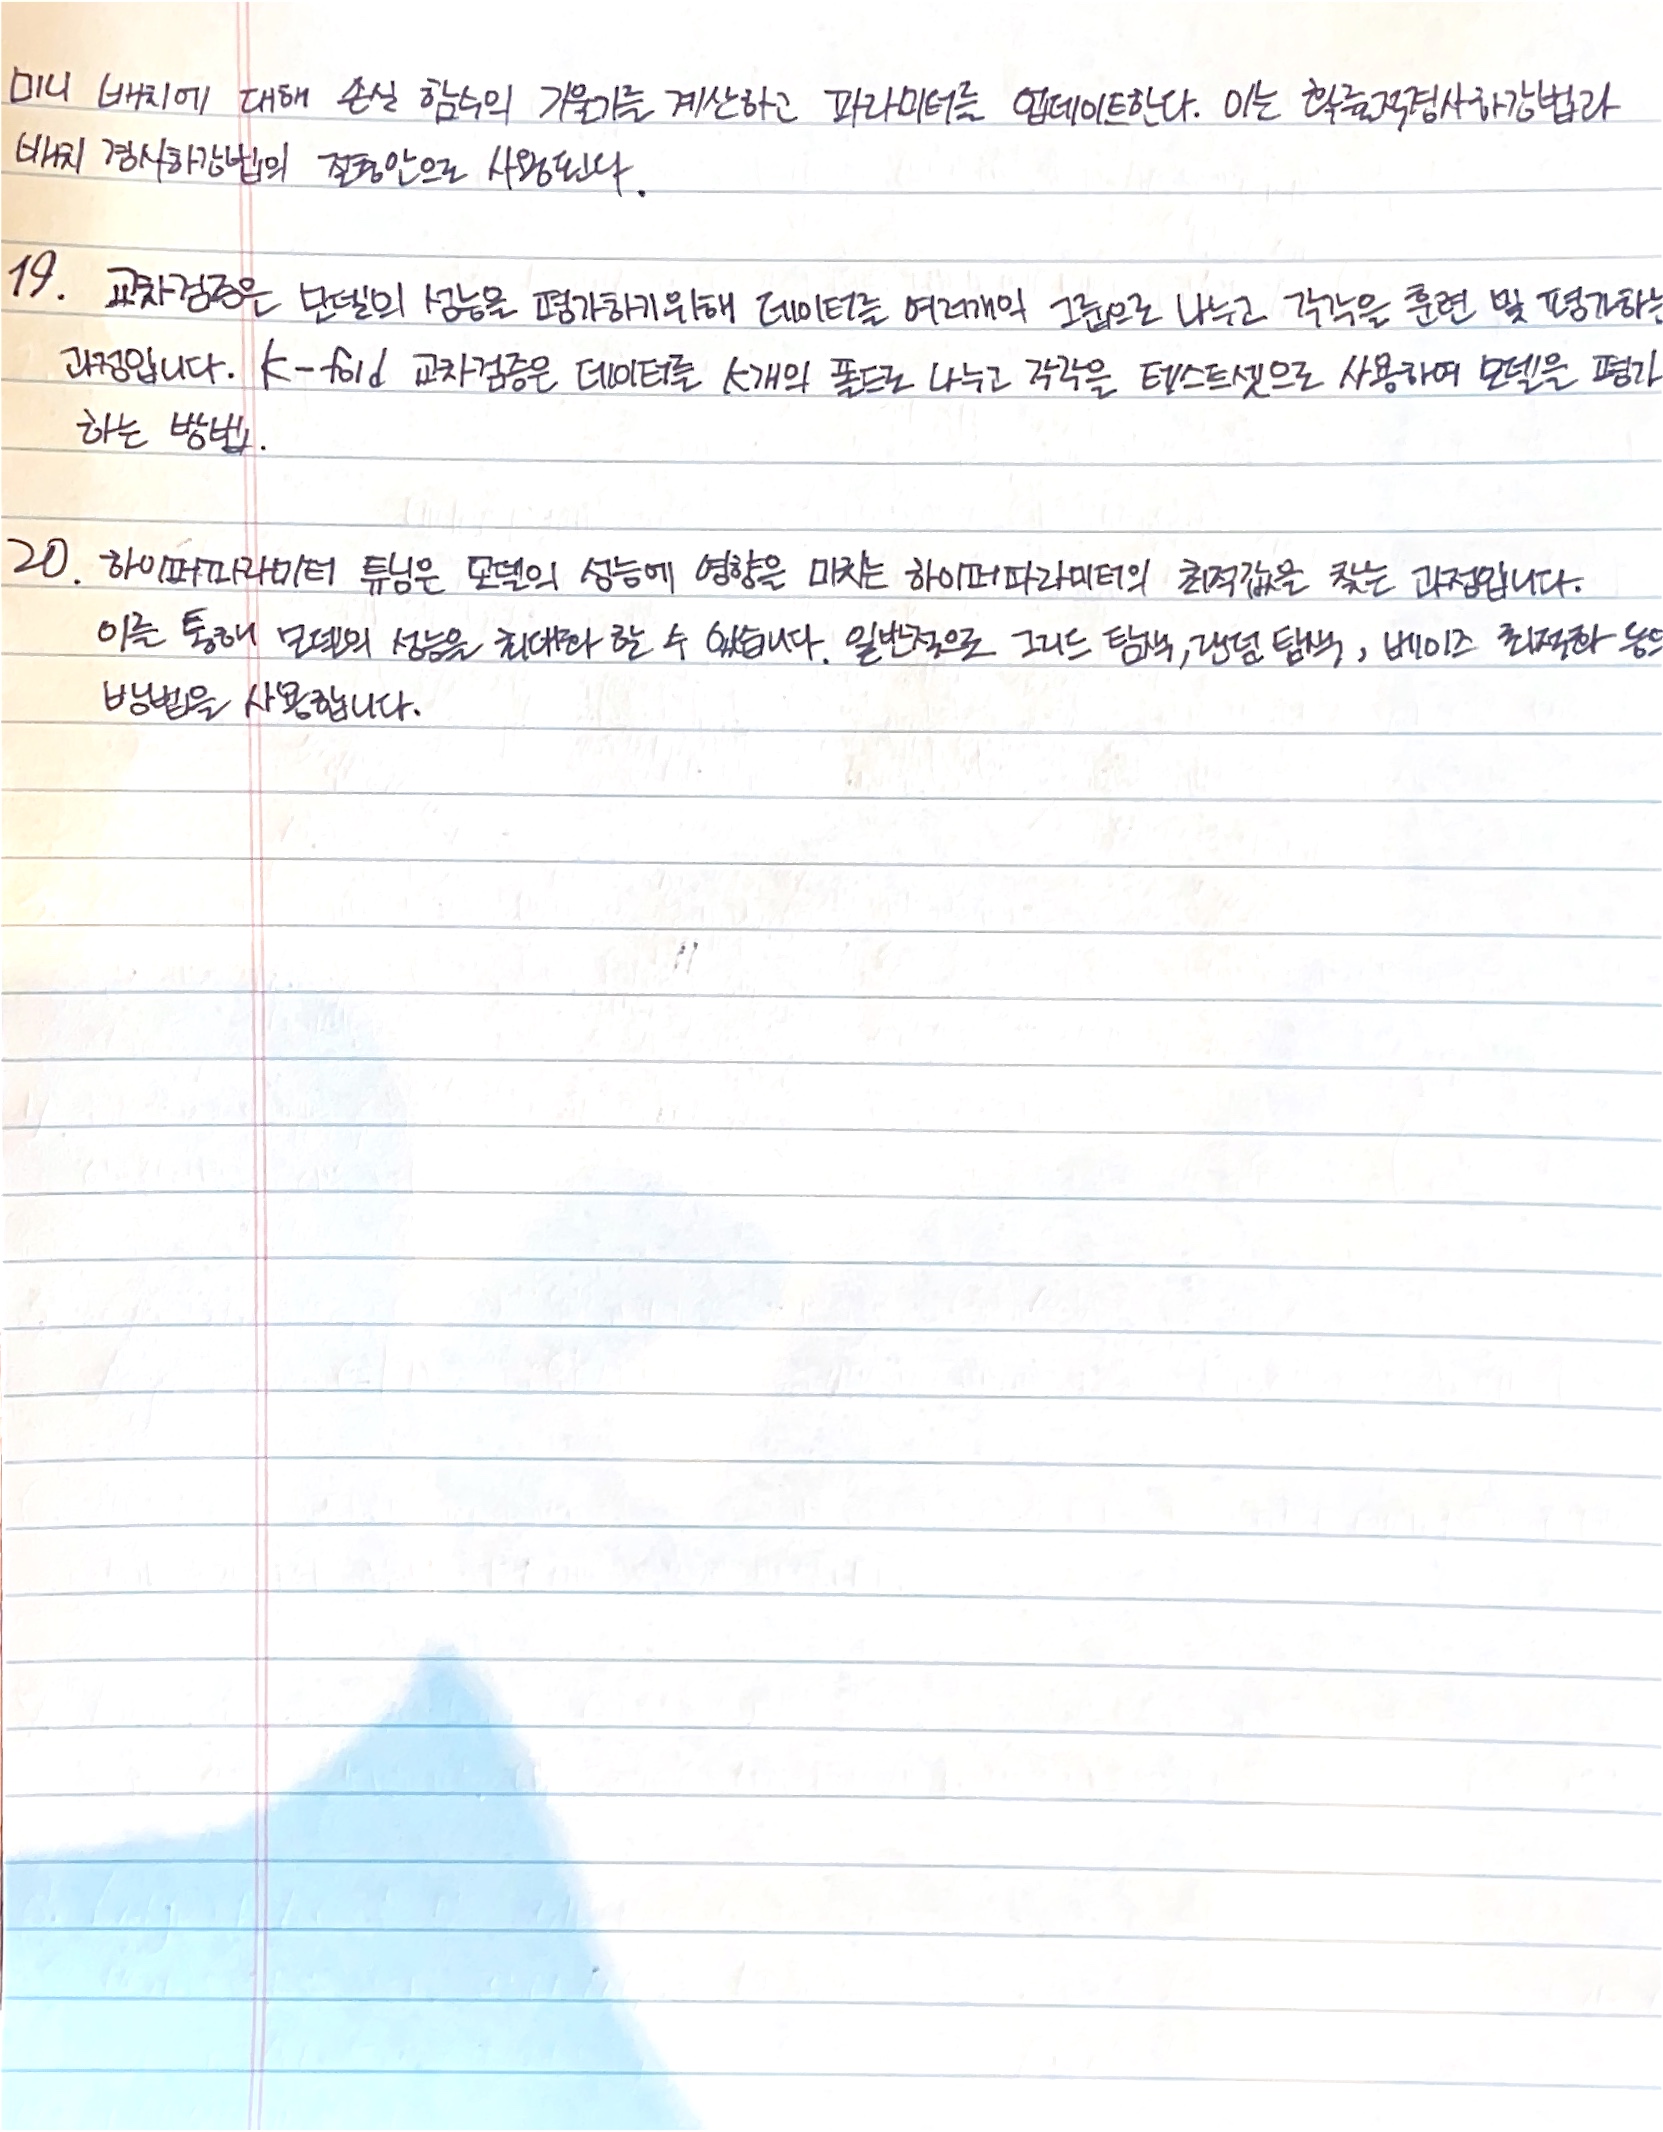 미니 배치에 대해 손실 함수의 기울기를 계산하고 파라미터를 업데이트한다. 이는 확률적경사하강법과
배치 경사하강법의 절충안으로 사용된다.
19. 교차검증은 모델의 성능을 평가하기위해 데이터를 여러개의 그룹으로 나누고 각각을 훈련 및 평가하는
과정입니다. K-fold 교차검증은 데이터를 K개의 폴드로 나누고 각각을 테스트셋으로 사용하여 모델을 평가
하는 방법.
20. 하이퍼파라미터 튜닝은 모델의 성능에 영향을 미치는 하이퍼파라미터의 최적값을 찾는 과정입니다.
이를 통해 모델의 성능을 최대화 할 수 있습니다. 일반적으로 그리드 탐색, 랜덤 탐색, 베이즈 최적화 등의
방법을 사용합니다.